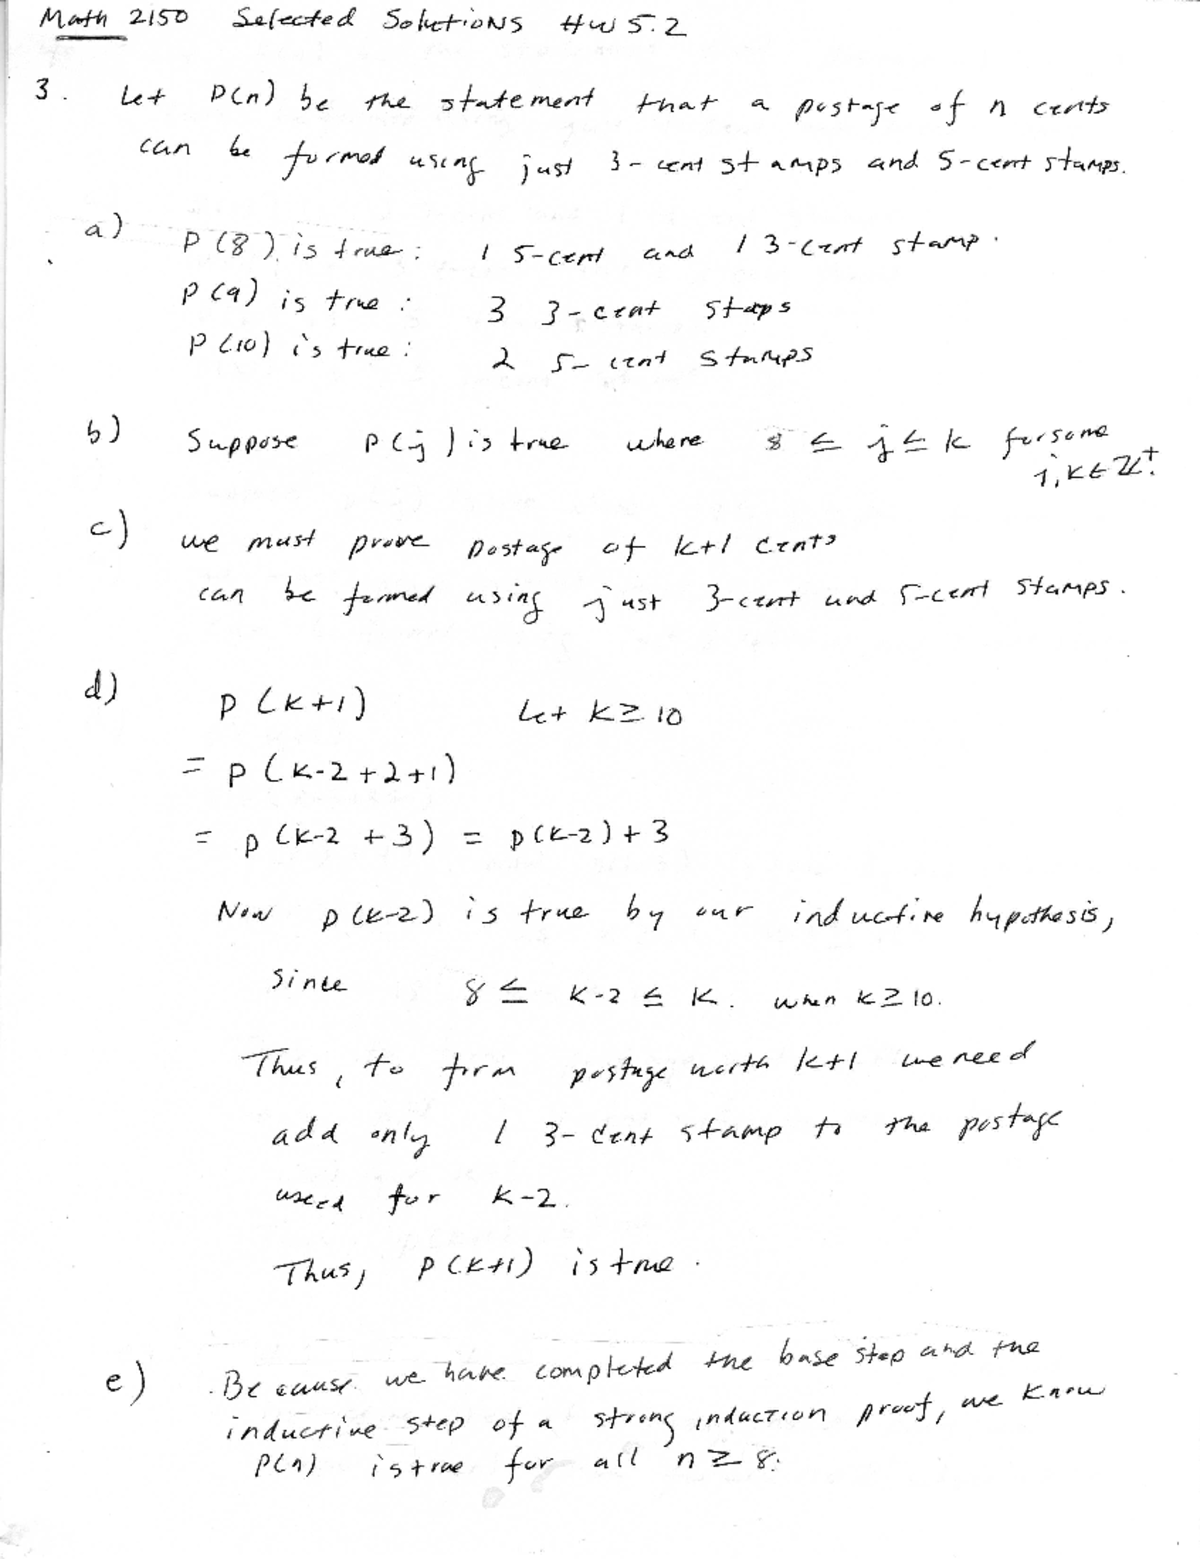 Math 2150 Selected Solutions HW 5.2
3. Let P(n) be the statement that a postage of n cents
can be formed using just 3-cent stamps and 5-cent stamps.
a) P(8) is true: 1 5-cent and 1 3-cent stamp.
P(9) is true: 3 3-cent staps
P(10) is true: 2 5-cent stamps
b) Suppose P(j) is true where 8 ≤ j ≤ k for some
j, k ∈ ℤ⁺.
c) we must prove postage of k+1 cents
can be formed using just 3-cent and 5-cent stamps.
d) P(k+1) Let k ≥ 10
= P(k-2+2+1)
= P(k-2+3) = P(k-2)+3
Now P(k-2) is true by our inductive hypothesis,
since 8 ≤ k-2 ≤ k. when k ≥ 10.
Thus, to form postage worth k+1 we need
add only 1 3-cent stamp to the postage
used for k-2.
Thus, P(k+1) is true.
e) Because we have completed the base step and the
inductive step of a strong induction proof, we know
P(n) is true for all n ≥ 8.